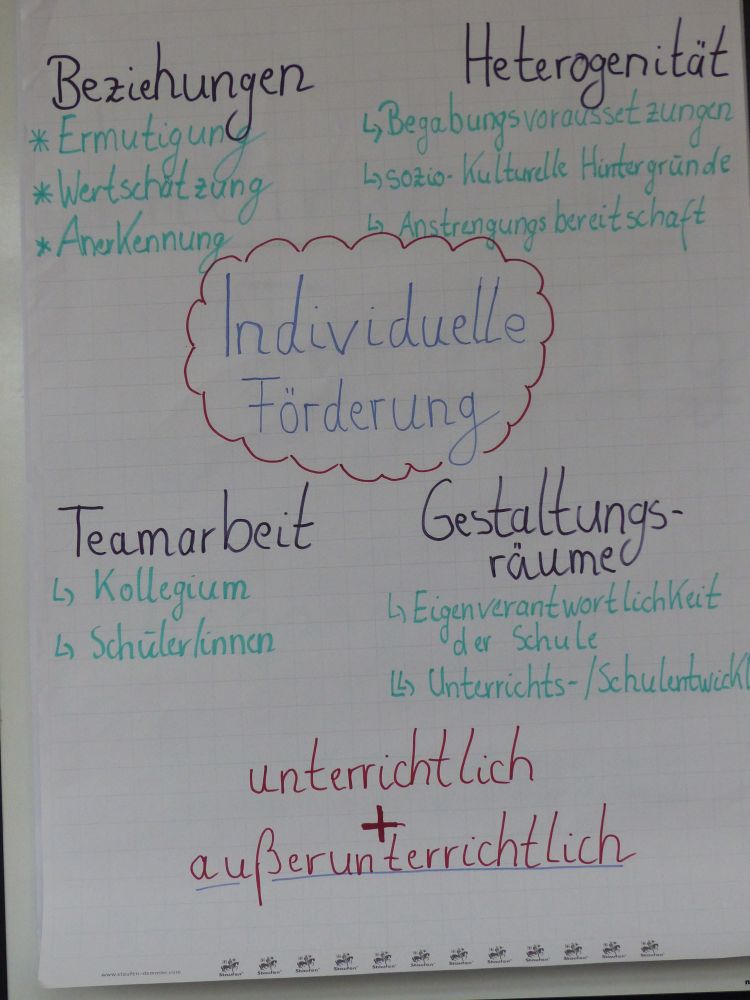 Beziehungen
* Ermutigung
* Wertschätzung
* Anerkennung
Heterogenität
↳ Begabungsvoraussetzungen
↳ sozio-kulturelle Hintergründe
↳ Anstrengungsbereitschaft
Individuelle
Förderung
Teamarbeit
↳ Kollegium
↳ Schüler/innen
Gestaltungs-
räume
↳ Eigenverantwortlichkeit
der Schule
↳ Unterrichts-/Schulentwickl
unterrichtlich
+
außerunterrichtlich
www.staufen-demmler.com
Staufen Staufen Staufen Staufen Staufen Staufen Staufen Staufen Staufen Staufen Staufen Staufen